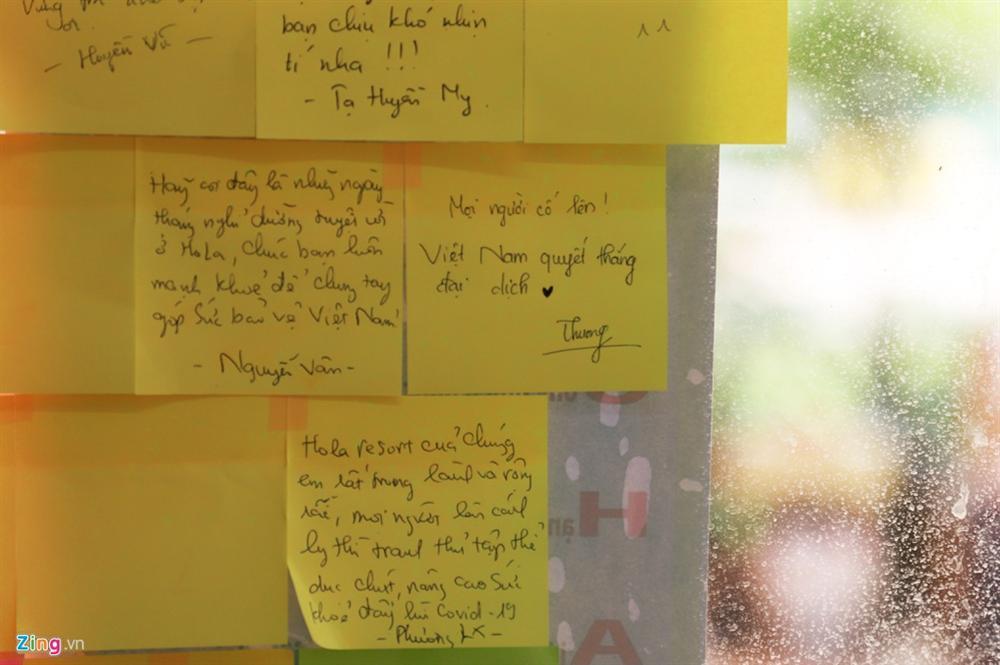 - Huyền Vũ -
bạn chịu khó nhịn
tí nha !!!
- Tạ Huyền My.
^ ^
Hãy coi đây là những ngày
tháng nghỉ dưỡng tuyệt vời
ở Hola, chúc bạn luôn
mạnh khoẻ để chung tay
góp sức bảo vệ Việt Nam!
- Nguyễn Vân -
Mọi người cố lên!
Việt Nam quyết thắng
đại dịch ♥
Thương
Hola resort của chúng
em rất trong lành và rộng
rãi, mọi người lần cách
ly thì tranh thủ tập thể
dục chút, nâng cao sức
khoẻ đẩy lùi Covid-19
- Phương LK -
H
A
Zing.vn